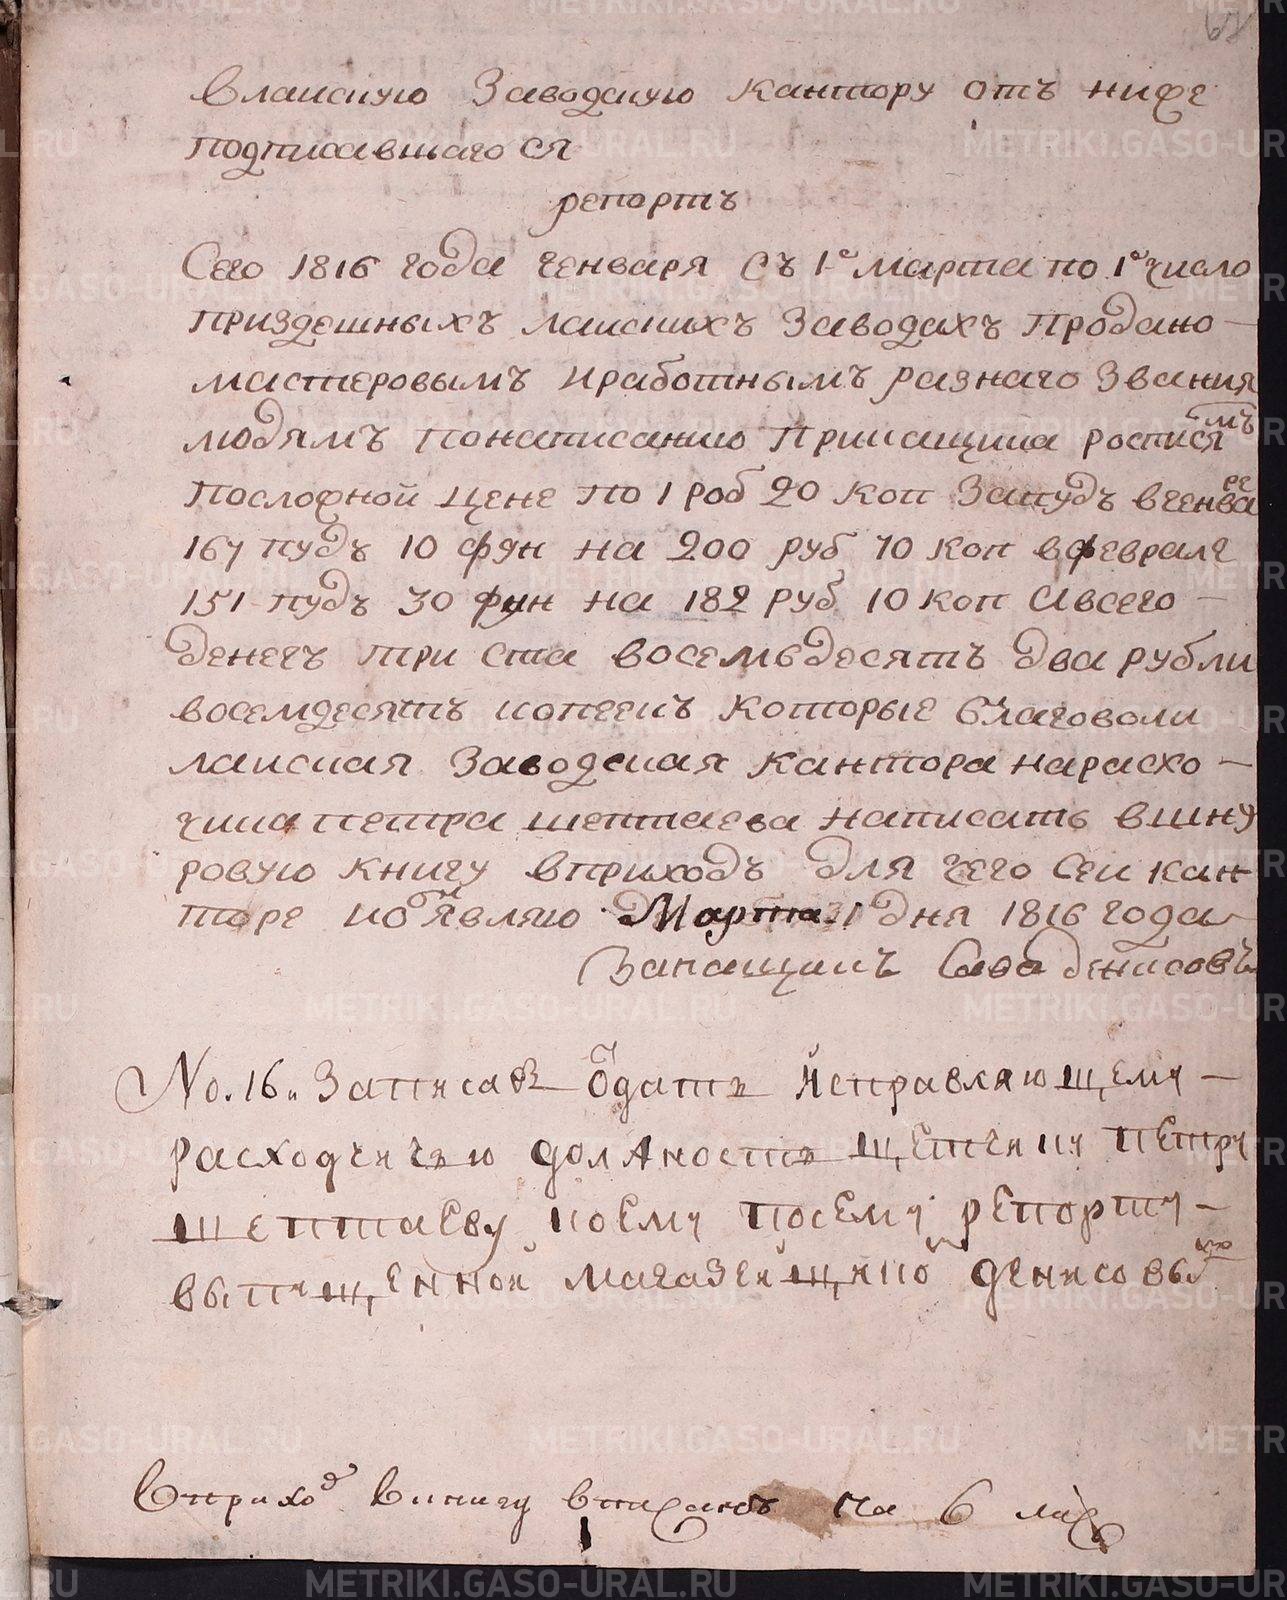 влаискую Заводскую кантору отъ ниже
подписавшагося
репортъ
Сего 1816 года генваря съ 1го марта по 1е число
приздешныхъ лаискихъ Заводахъ продано
мастеровымъ иработнымъ разнаго Звания
людямъ понаписанию Прикащика росписямъ
посложной цене по 1 роб 20 коп Запудъ вгенваре
167 пудъ 10 фун на 200 руб 70 коп вфеврале
151 пудъ 30 фун на 182 руб 10 коп Авсего
денегъ три ста восемьдесятъ два рубли
восемдесятъ копеекъ которые благоволи
лаиская Заводская кантора нарасхо-
чика петра шептаева написать вшну
ровую книгу вприходъ для чего сеи кан
торе иобъявляю Марта 1 дня 1816 года
Запащикъ Сава денисовъ
No. 16. Записавъ Отдать исправляющему
расходчичью должность щетчику петру
шептаеву коему посему репорту
выпищенной магазейщикой денисовы
вприход вкнигу вписанъ на 6 лис
METRIKI.GASO-URAL.RU